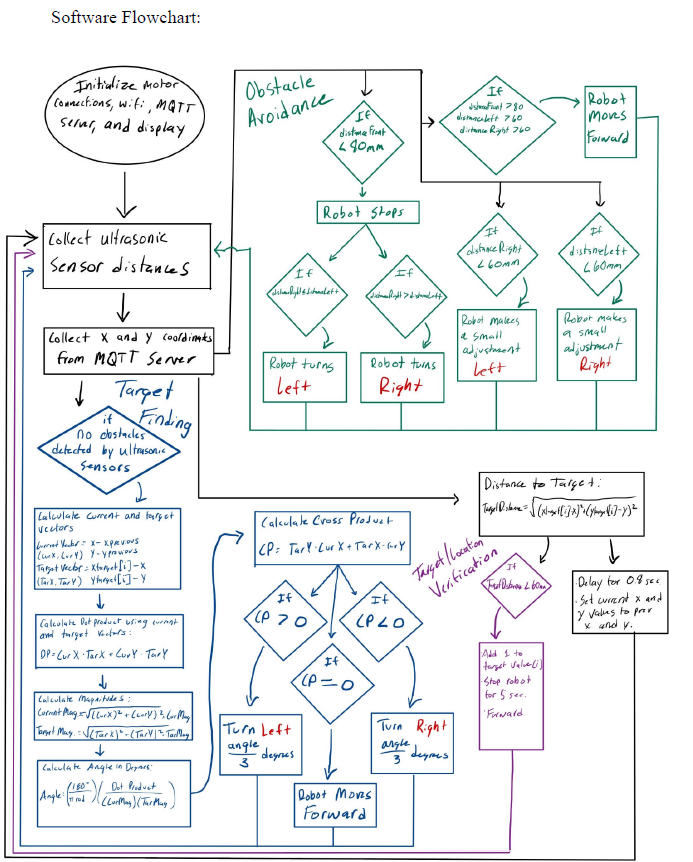 Software Flowchart:
Initialize Motor
connections, wifi, MQTT
server, and display
Collect ultrasonic
Sensor distances
Collect X and Y coordinates
from MQTT Server
Obstacle
Avoidance
If
distanceFront
< 80mm
Robot Stops
If
distanceRight ≤ distanceLeft
Robot turns
Left
If
distanceRight > distanceLeft
Robot turns
Right
If
distanceFront > 80
distanceLeft > 60
distanceRight > 60
Robot
Moves
Forward
If
distanceRight
< 60mm
Robot makes
a small
adjustment
Left
If
distanceLeft
< 60mm
Robot makes
a small
adjustment
Right
Target
Finding
if
no obstacles
detected by ultrasonic
Sensors
Calculate Current and target
vectors
Current Vector = X - Xprevious
(CurX, CurY) Y - Yprevious
Target Vector = Xtarget[i] - X
(TarX, TarY) Ytarget[i] - Y
Calculate Dot product using current
and target Vectors:
DP = CurX · TarX + CurY · TarY
Calculate Magnitudes:
CurrentMag = √((CurX)² + (CurY)²) = CurMag
Target Mag. = √((TarX)² - (TarY)²) = TarMag
Calculate Angle in Degrees:
Angle: (180°/π rad) (Dot Product/(CurMag)(TarMag))
Calculate Cross Product
CP = TarY · CurX + TarX · CurY
If
CP > 0
If
CP < 0
If
CP = 0
Turn Left
angle
3 degrees
Turn Right
angle
3 degrees
Robot Moves
Forward
Distance to Target:
TargetDistance = √((xtarget[i]-x)²+(ytarget[i]-y)²
Target/Location
Verification
If
TargetDistance < 60mm
· Add 1 to
target value (i)
· Stop robot
for 5 sec.
· Forward
· Delay for 0.8 sec
· Set current x and
y values to prev
x and y.